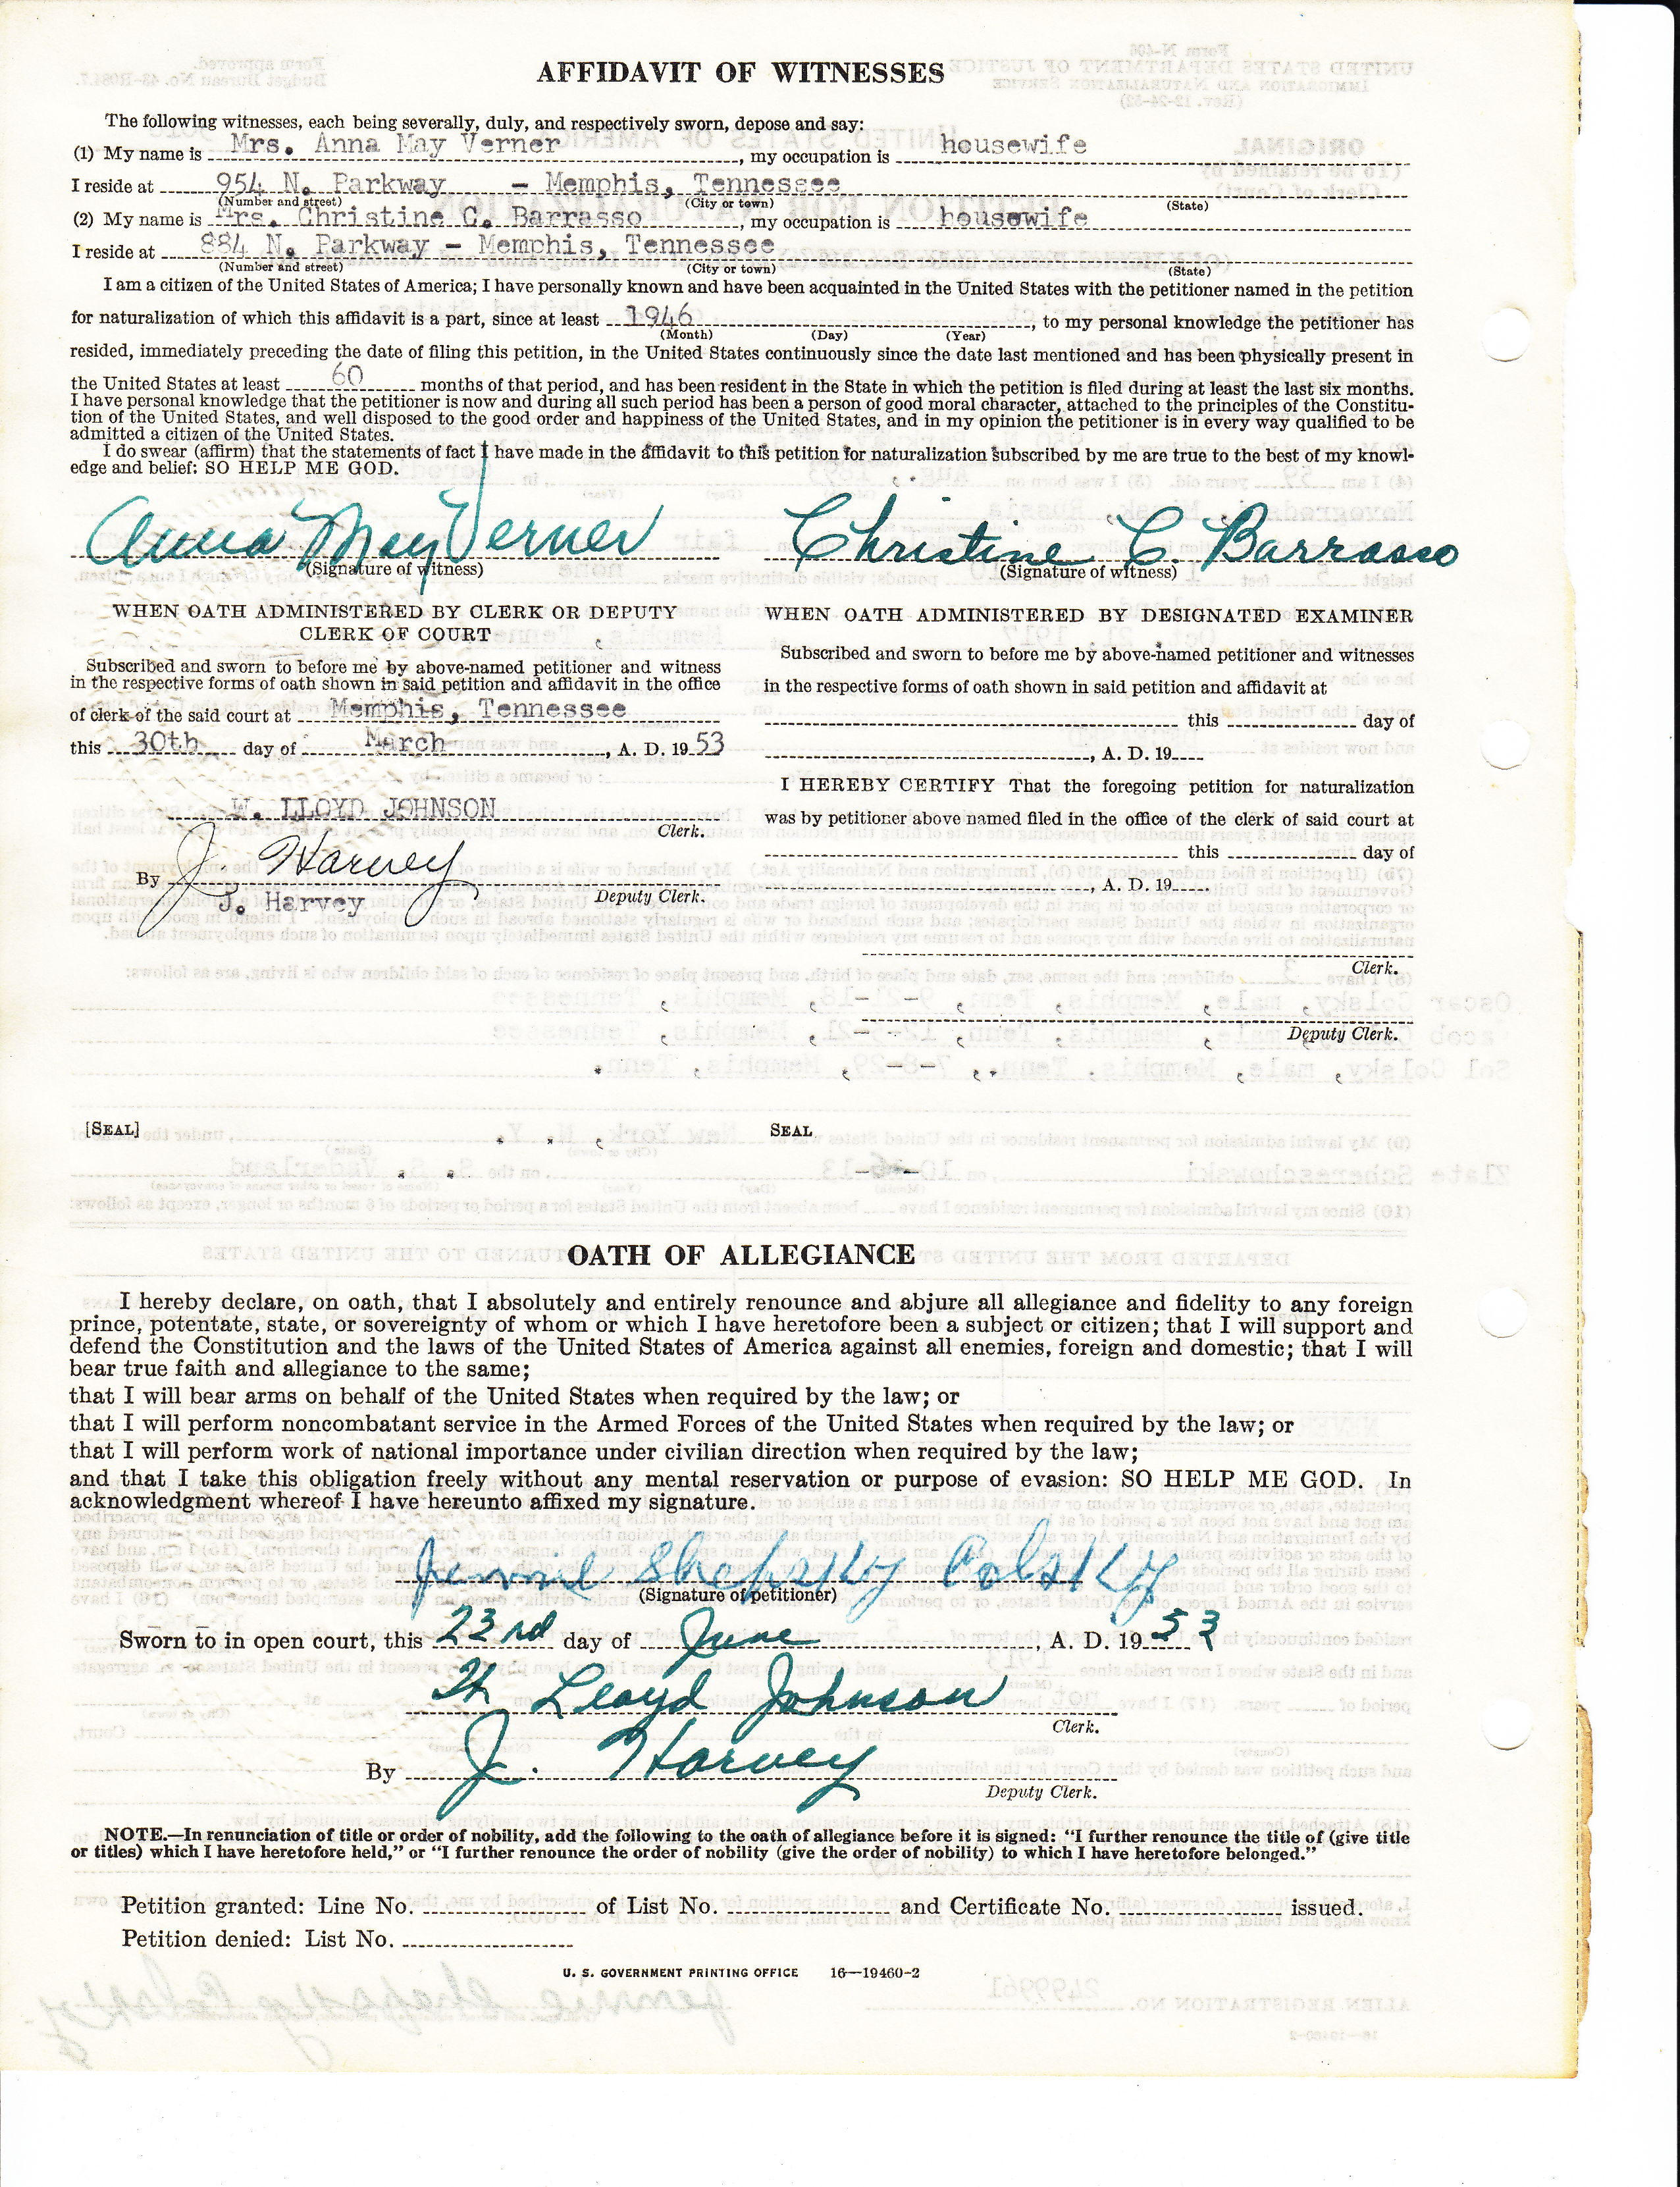 AFFIDAVIT OF WITNESSES
The following witnesses, each being severally, duly, and respectively sworn, depose and say:
(1) My name is Mrs. Anna May Verner, my occupation is housewife
I reside at 954 N. Parkway – Memphis, Tennessee
(Number and street) (City or town) (State)
(2) My name is Mrs. Christine C. Barrasso, my occupation is housewife
I reside at 884 N. Parkway – Memphis, Tennessee
(Number and street) (City or town) (State)
I am a citizen of the United States of America; I have personally known and have been acquainted in the United States with the petitioner named in the petition
for naturalization of which this affidavit is a part, since at least 1946, to my personal knowledge the petitioner has
(Month) (Day) (Year)
resided, immediately preceding the date of filing this petition, in the United States continuously since the date last mentioned and has been physically present in
the United States at least 60 months of that period, and has been resident in the State in which the petition is filed during at least the last six months.
I have personal knowledge that the petitioner is now and during all such period has been a person of good moral character, attached to the principles of the Constitu-
tion of the United States, and well disposed to the good order and happiness of the United States, and in my opinion the petitioner is in every way qualified to be
admitted a citizen of the United States.
I do swear (affirm) that the statements of fact I have made in the affidavit to this petition for naturalization subscribed by me are true to the best of my knowl-
edge and belief: SO HELP ME GOD.
Anna May Verner Christine C. Barrasso
(Signature of witness) (Signature of witness)
WHEN OATH ADMINISTERED BY CLERK OR DEPUTY
CLERK OF COURT
Subscribed and sworn to before me by above-named petitioner and witness
in the respective forms of oath shown in said petition and affidavit in the office
of clerk of the said court at Memphis, Tennessee
this 30th day of March, A. D. 19 53
W. LLOYD JOHNSON
Clerk.
By J. Harvey
J. Harvey Deputy Clerk.
WHEN OATH ADMINISTERED BY DESIGNATED EXAMINER
Subscribed and sworn to before me by above-named petitioner and witnesses
in the respective forms of oath shown in said petition and affidavit at
this day of
, A. D. 19
I HEREBY CERTIFY That the foregoing petition for naturalization
was by petitioner above named filed in the office of the clerk of said court at
this day of
, A. D. 19
Clerk.
Deputy Clerk.
[SEAL] SEAL
OATH OF ALLEGIANCE
I hereby declare, on oath, that I absolutely and entirely renounce and abjure all allegiance and fidelity to any foreign
prince, potentate, state, or sovereignty of whom or which I have heretofore been a subject or citizen; that I will support and
defend the Constitution and the laws of the United States of America against all enemies, foreign and domestic; that I will
bear true faith and allegiance to the same;
that I will bear arms on behalf of the United States when required by the law; or
that I will perform noncombatant service in the Armed Forces of the United States when required by the law; or
that I will perform work of national importance under civilian direction when required by the law;
and that I take this obligation freely without any mental reservation or purpose of evasion: SO HELP ME GOD. In
acknowledgment whereof I have hereunto affixed my signature.
Jennie Shepsky Colsky
(Signature of petitioner)
Sworn to in open court, this 23rd day of June, A. D. 19 53
W Lloyd Johnson
Clerk.
By J. Harvey
Deputy Clerk.
NOTE.—In renunciation of title or order of nobility, add the following to the oath of allegiance before it is signed: "I further renounce the title of (give title
or titles) which I have heretofore held," or "I further renounce the order of nobility (give the order of nobility) to which I have heretofore belonged."
Petition granted: Line No. of List No. and Certificate No. issued.
Petition denied: List No.
U. S. GOVERNMENT PRINTING OFFICE 16—19460-2